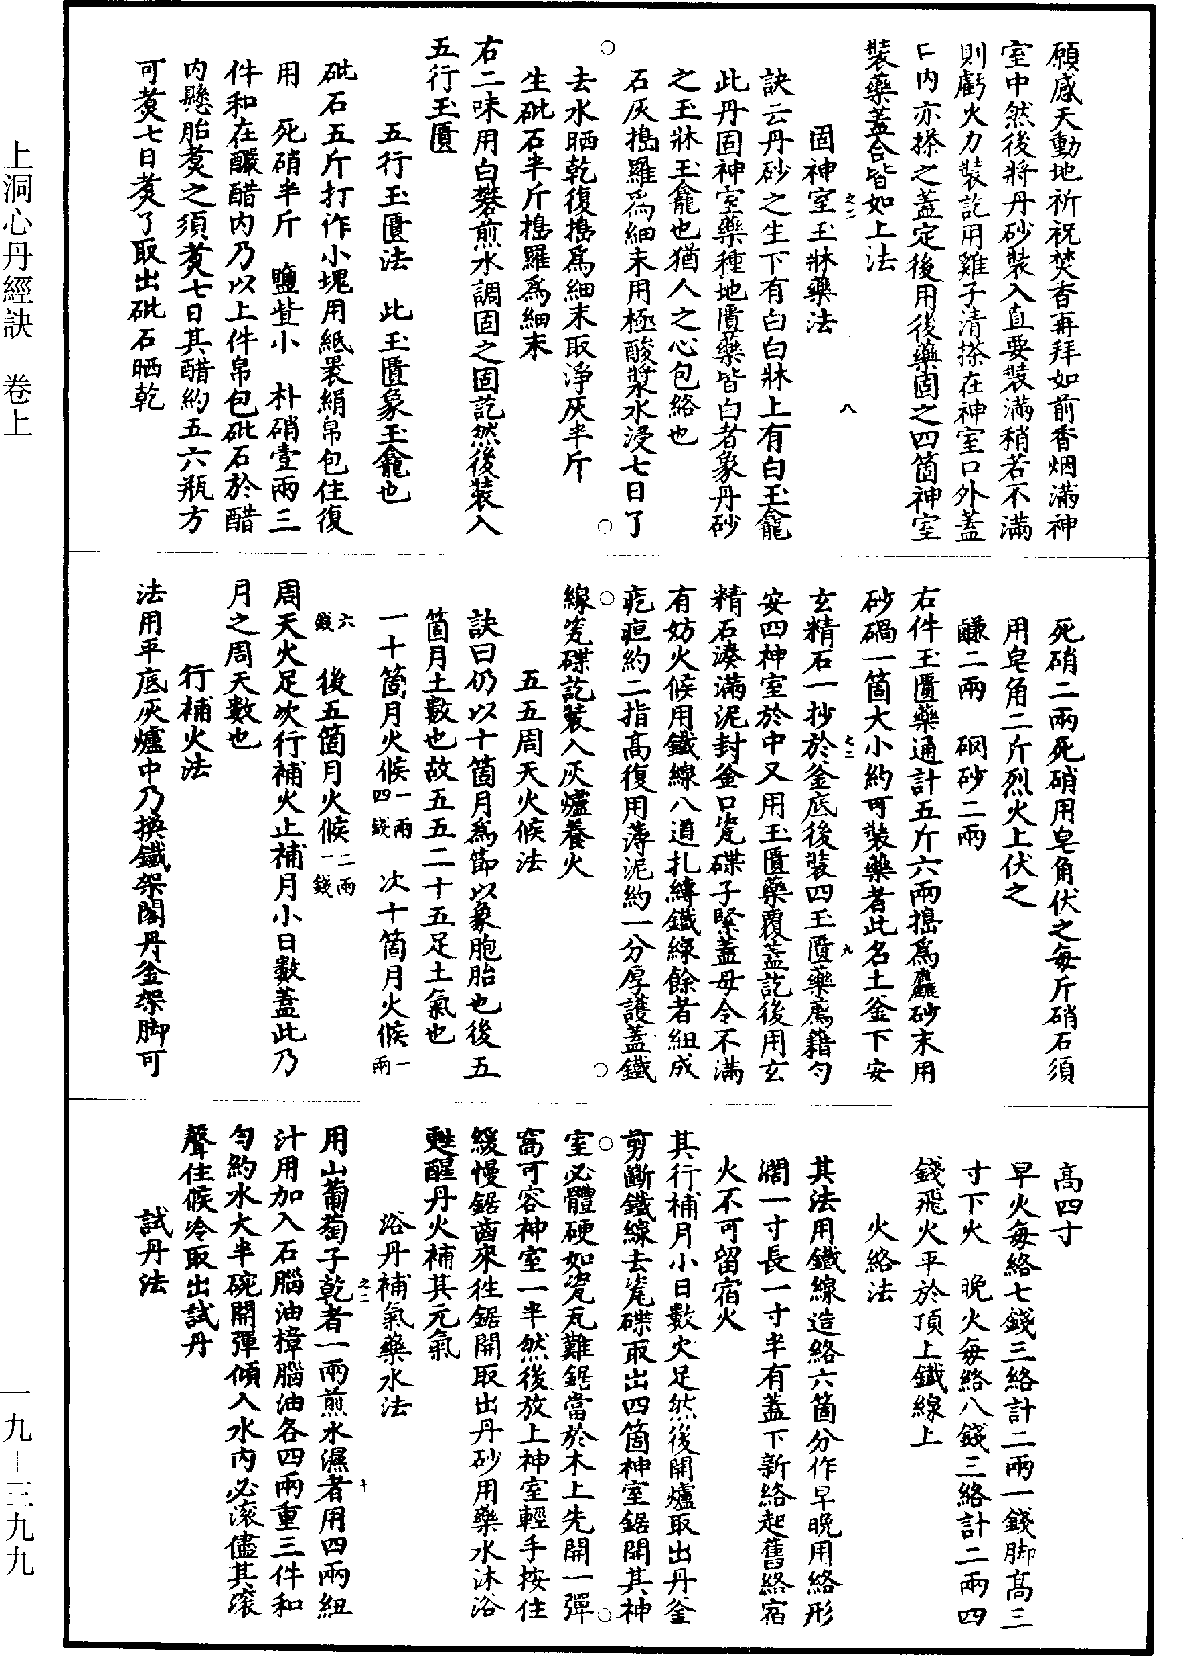 願感天動地祈祝焚香再拜如前香烟滿神
室中然後將丹砂裝入直要裝滿稍若不滿
則虧火力裝訖用雞子清搽在神室口外蓋
口內亦搽之蓋定後用後藥固之四箇神室
裝藥蓋合皆如上法
固神室玉牀藥法
訣云丹砂之生下有白白牀上有白玉龕
此丹固神室藥種地匱藥皆白者象丹砂
之玉牀玉龕也猶人之心包絡也
石灰搗羅爲細末用極酸漿水浸七日了
去水晒乾復搗爲細末取淨灰半斤
生砒石半斤搗羅爲細末
右二味用白礬煎水調固之固訖然後裝入
五行玉匱
五行玉匱法 此玉匱象玉龕也
砒石五斤打作小塊用紙裹絹帛包住復
用 死硝半斤 鹽壹小 朴硝壹兩三
件和在釅醋內乃以上件帛包砒石於醋
內懸胎煑之須煑七日其醋約五六瓶方
可煑七日煑了取出砒石晒乾
死硝二兩死硝用皂角伏之每斤硝石須
用皂角二斤烈火上伏之
鹻二兩 硇砂二兩
右件玉匱藥通計五斤六兩搗爲麤砂末用
砂碢一箇大小約可裝藥者此名土釜下安
玄精石一抄於釜底後裝四玉匱藥薦籍勻
安四神室於中又用玉匱藥覆蓋訖後用玄
精石湊滿泥封釜口瓷碟子緊蓋毋令不滿
有妨火候用鐵線八道扎縛鐵線餘者紐成
疙疸約二指高復用薄泥約一分厚護蓋鐵
線瓷碟訖裝入灰爐養火
五五周天火候法
訣曰仍以十箇月爲節以象胞胎也後五
箇月土數也故五五二十五足土氣也
一十箇月火候一兩四錢 次十箇月火候一兩
六錢 後五箇月火候二兩一錢
周天火足次行補火止補月小日數蓋此乃
月之周天數也
行補火法
法用平底灰爐中乃換鐵架閣丹釜架脚可
高四寸
早火每絡七錢三絡計二兩一錢脚高三
寸下火 晚火每絡八錢三絡計二兩四
錢飛火平於頂上鐵線上
火絡法
其法用鐵線造絡六箇分作早晚用絡形
濶一寸長一寸半有蓋下新絡起舊絡宿
火不可留宿火
其行補月小日數火足然後開爐取出丹釜
剪斷鐵線去瓷碟取出四箇神室鋸開其神
室必體硬如瓷瓦難鋸當於木上先開一彈
窩可容神室一半然後放上神室輕手按住
緩慢鋸齒來徃鋸開取出丹砂用藥水沐浴
甦醒丹火補其元氣
浴丹補氣藥水法
用山葡萄子乾者一兩煎水濕者用四兩紐
汁用加入石腦油樟腦油各四兩重三件和
勻約水大半碗開彈傾入水內必滾儘其滾
聲住候冷取出試丹
試丹法
上洞心丹經訣 卷上
一九－三九九